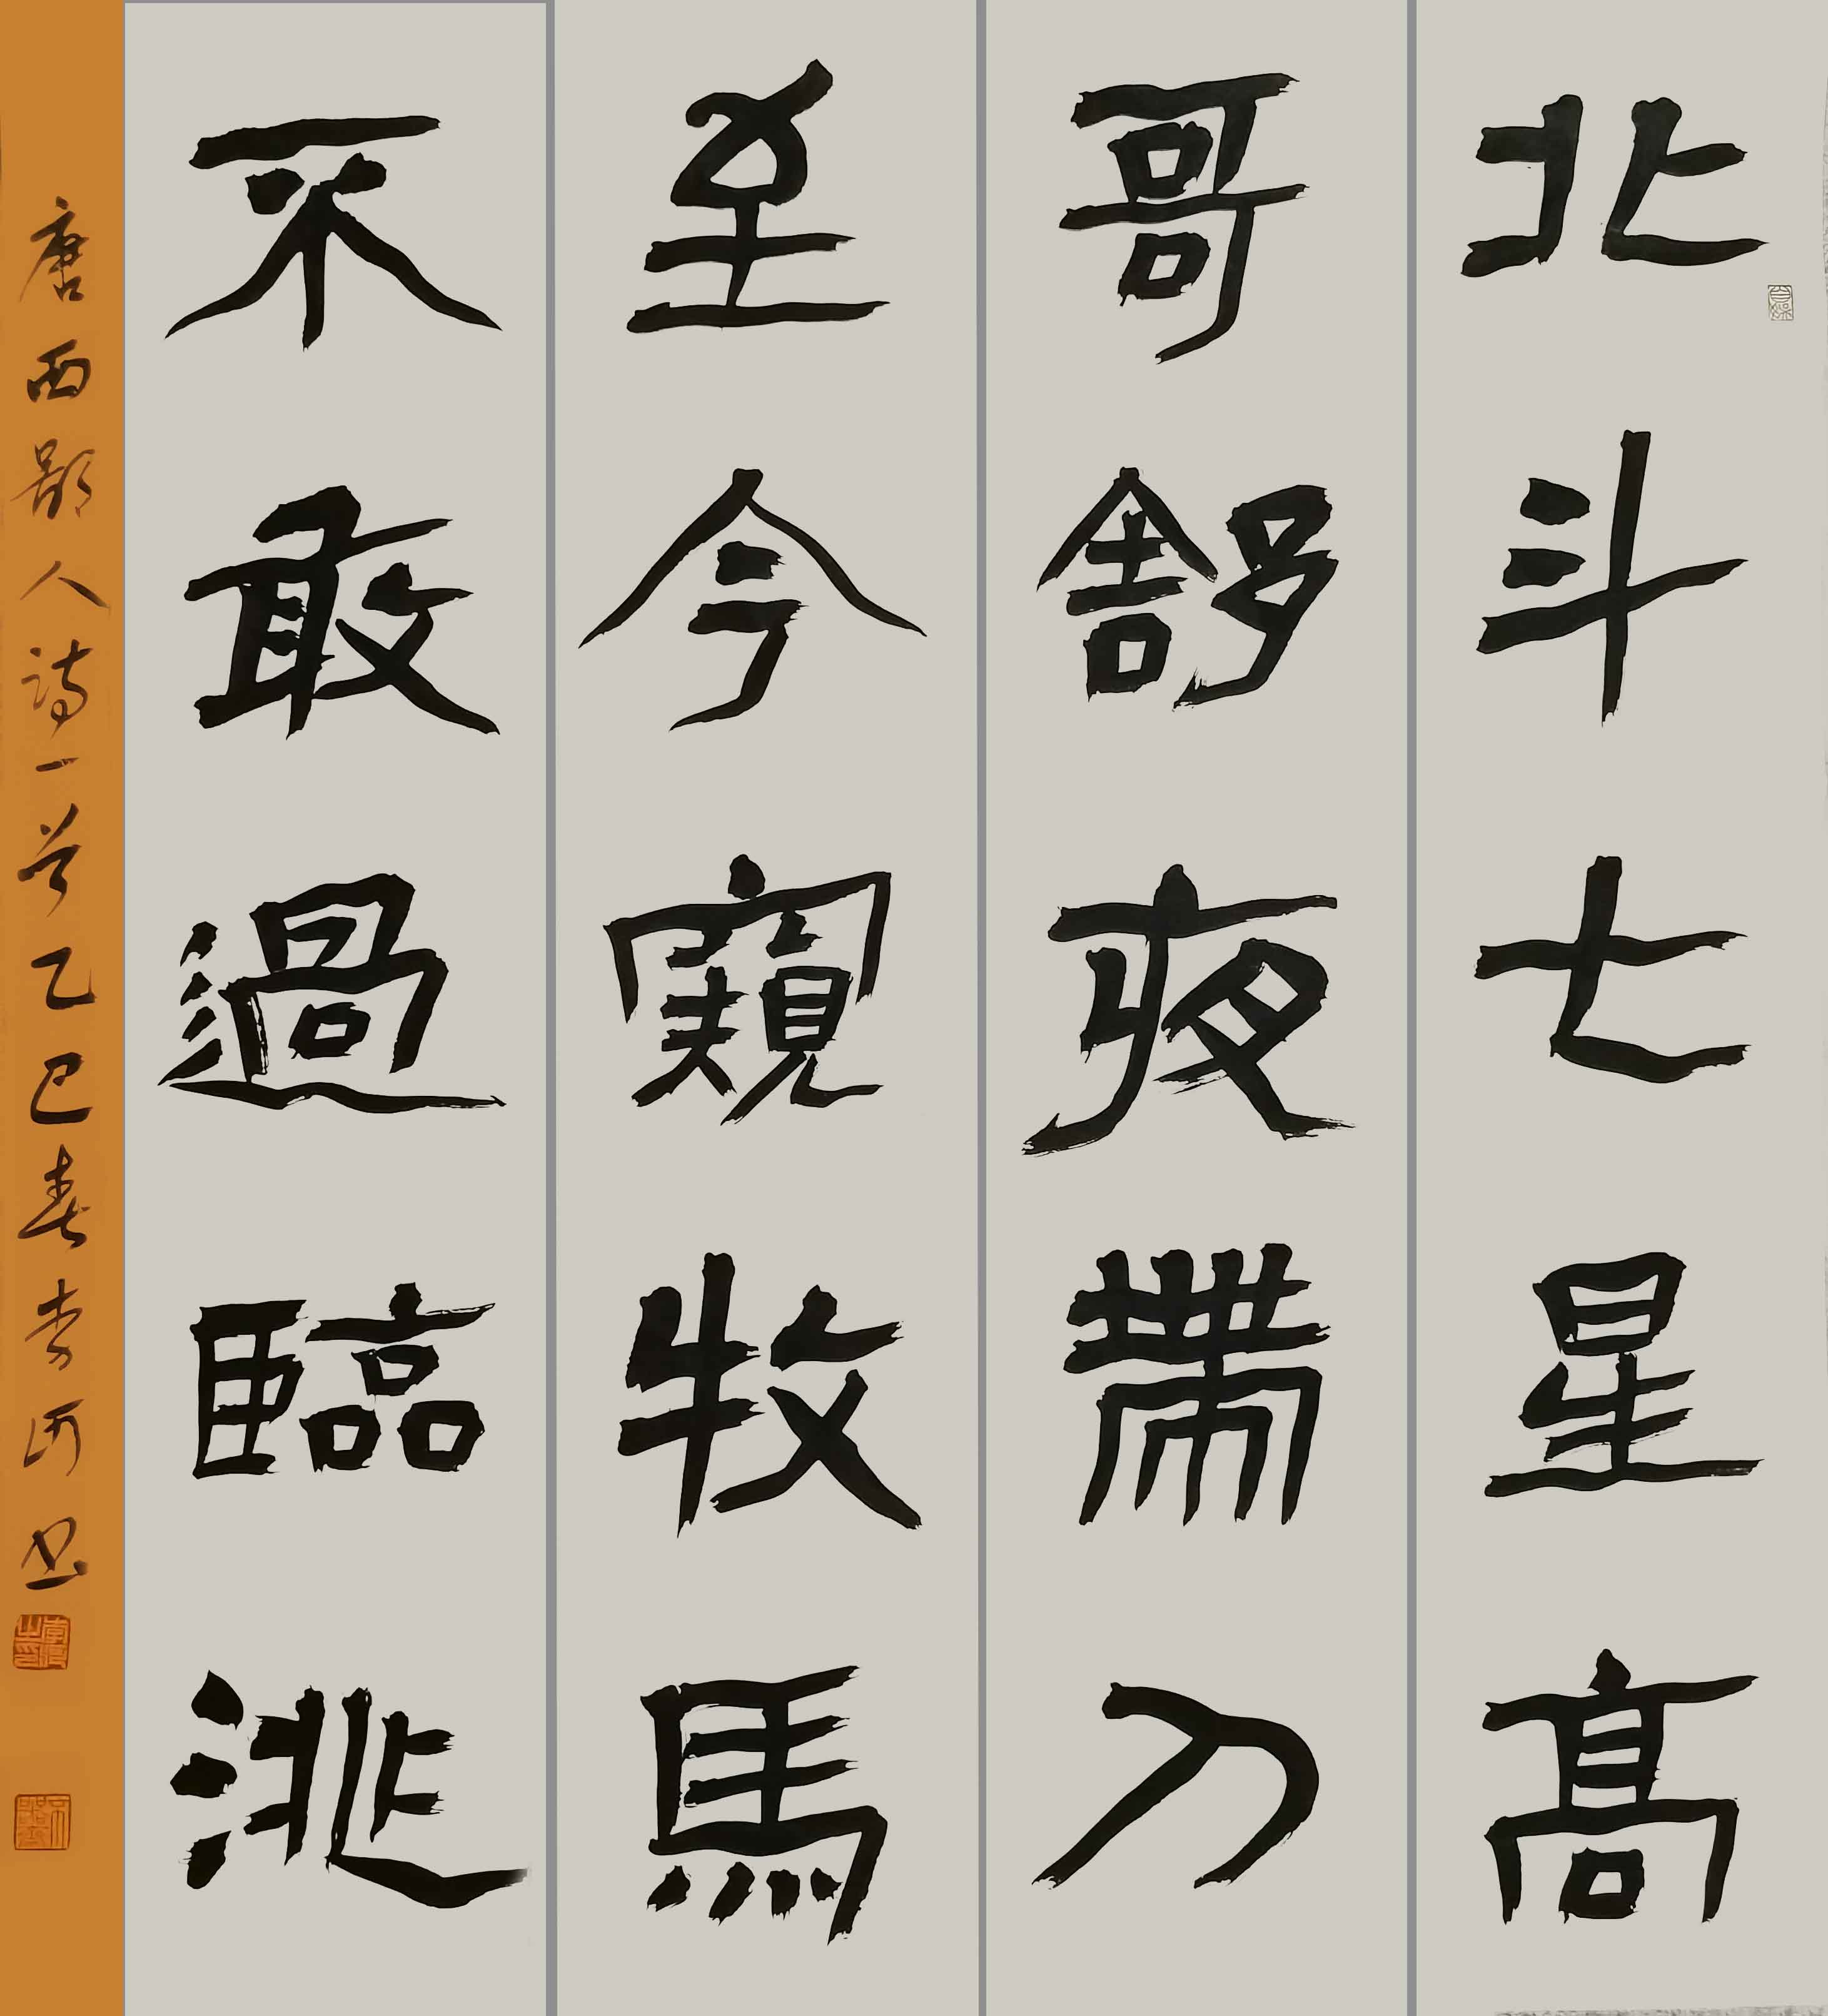 北斗七星高
哥舒夜帶刀
至今窺牧馬
不敢過臨洮
唐西鄙人詩一首乙巳春李河书